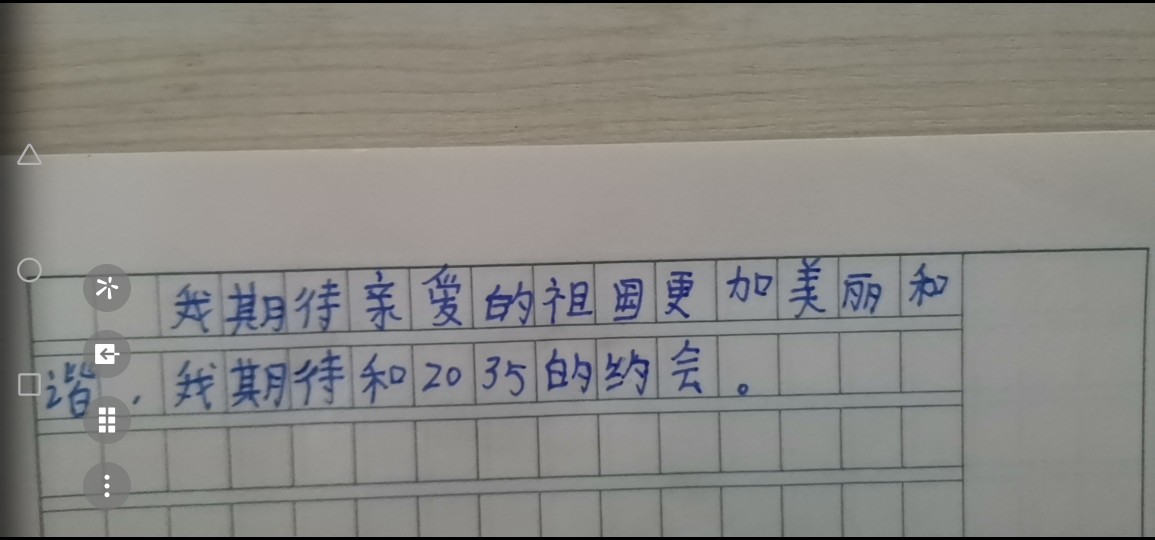 我期待亲爱的祖国更加美丽和
谐，我期待和2035的约会。